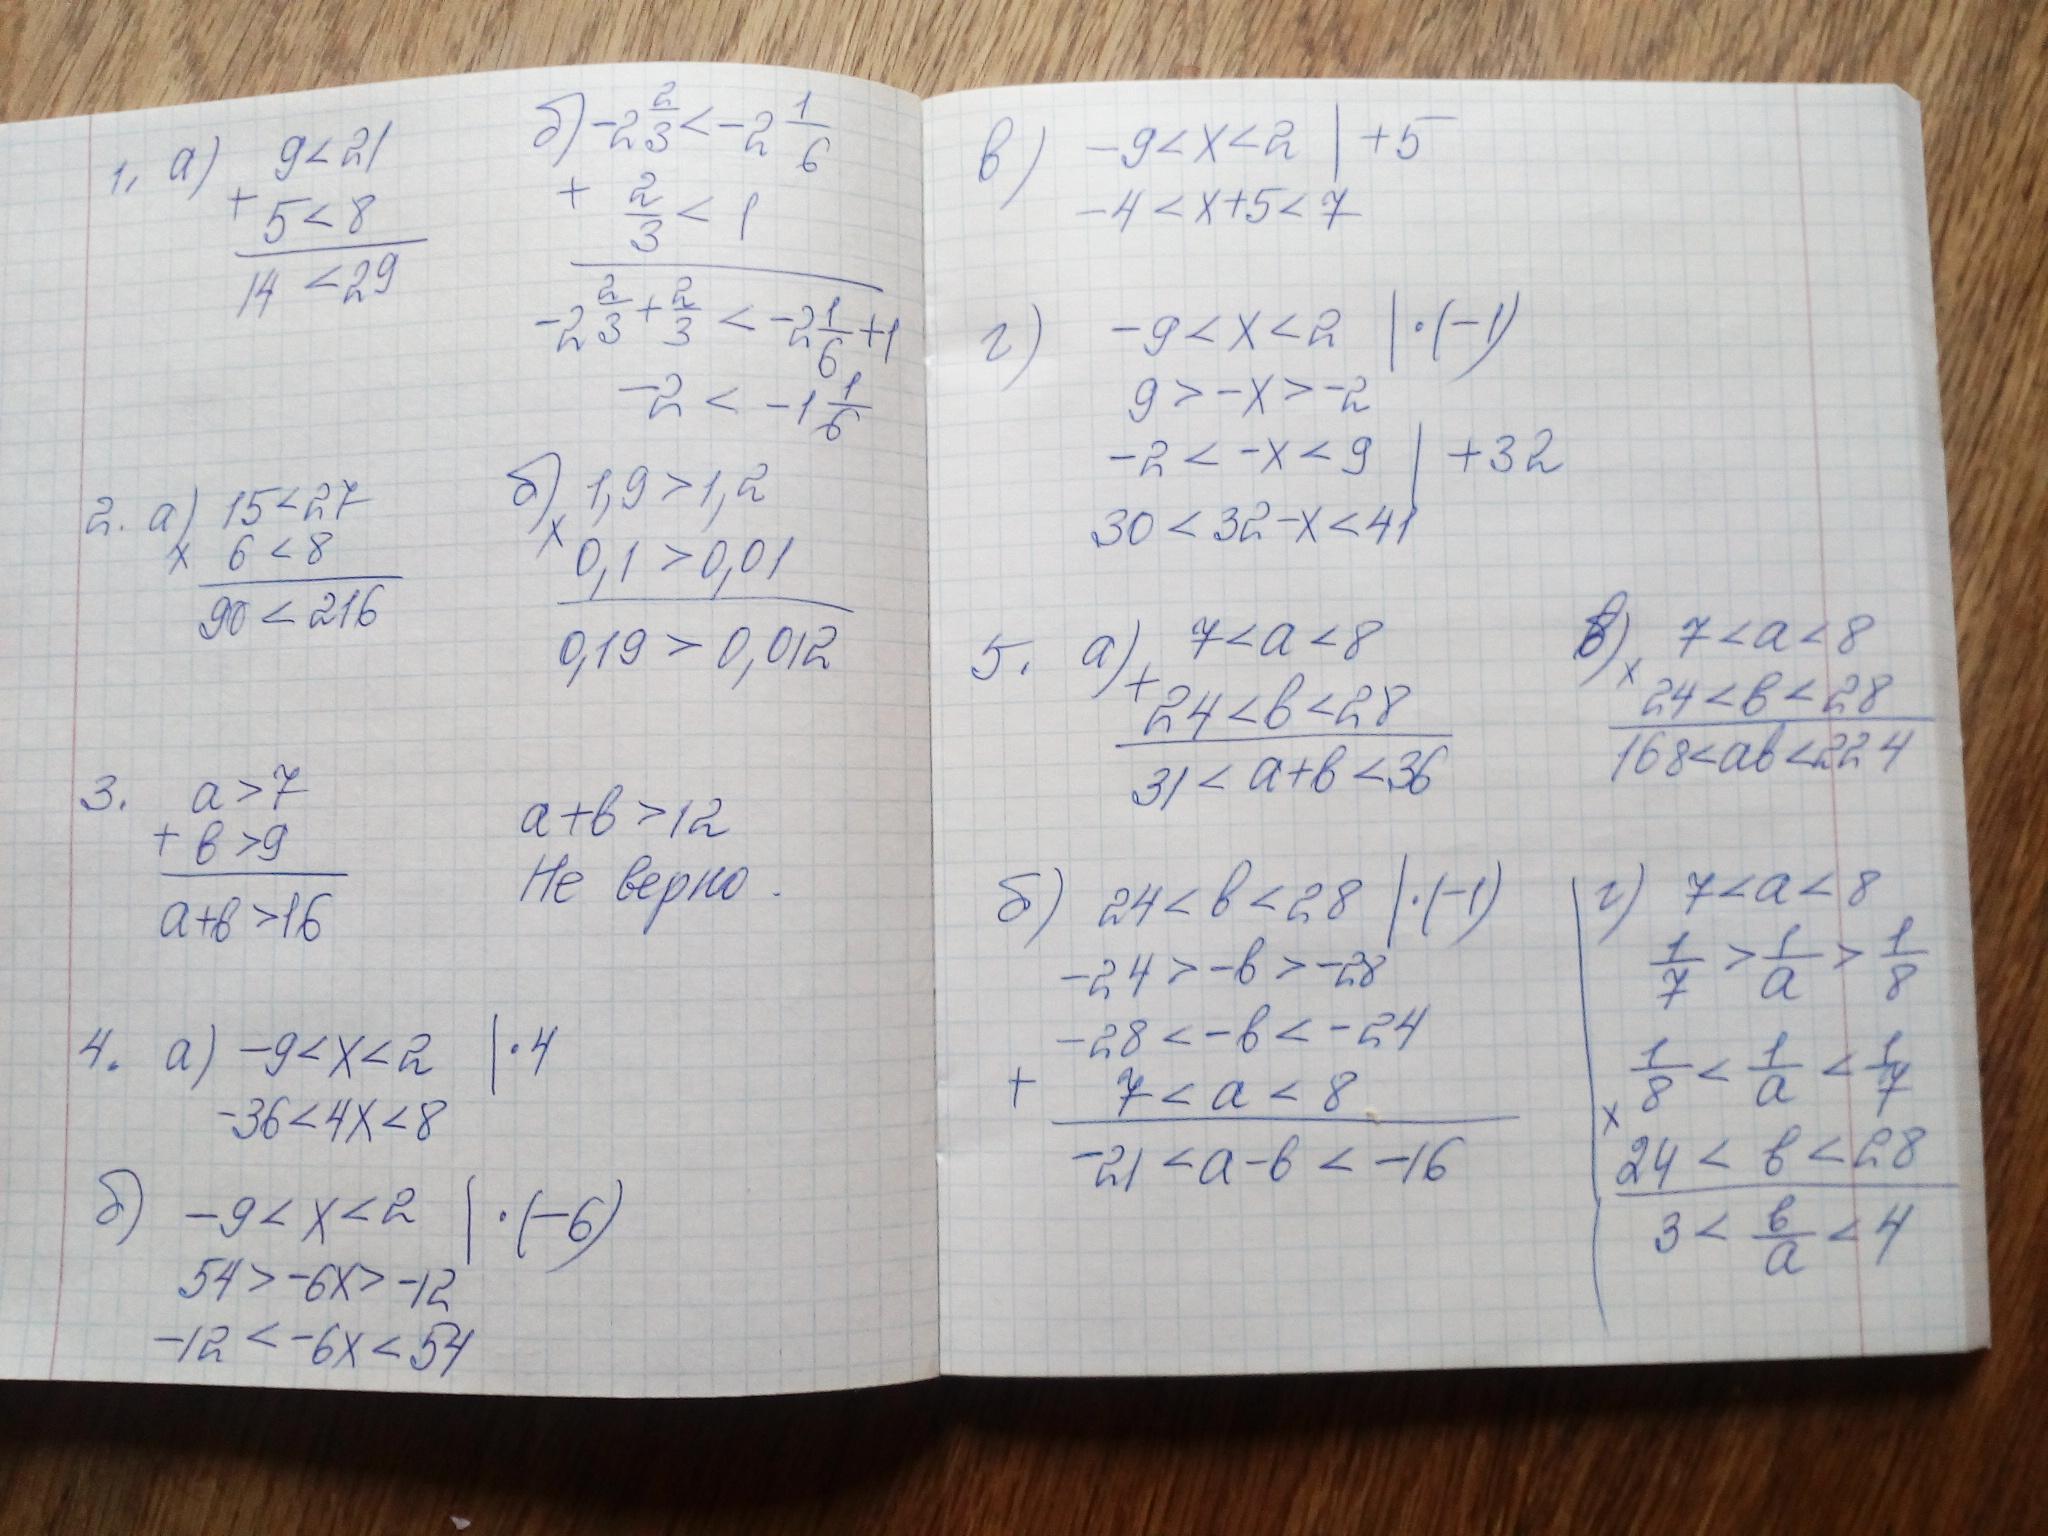 1. а) 9<21
+ 5<8
14 <29
б) -2 2/3 < -2 1/6
+ 2/3 < 1
-2 2/3 + 2/3 < -2 1/6 +1
-2 < -1 1/6
2. а) 15<27
х 6<8
90<216
б) 1,9>1,2
х 0,1>0,01
0,19>0,012
3. а>7
+ в>9
а+в>16
а+в>12
Не верно.
4. а) -9<х<2 | ·4
-36<4х<8
б) -9<х<2 | ·(-6)
54>-6х>-12
-12<-6х<54
в) -9<х<2 | +5
-4<х+5<7
г) -9<х<2 | ·(-1)
9>-х>-2
-2<-х<9 | +32
30<32-х<41
5. а) 7<а<8
+ 24<в<28
31<а+в<36
в) 7<а<8
х 24<в<28
168<ав<224
б) 24<в<28 | ·(-1)
-24>-в>-28
-28<-в<-24
+ 7<а<8
-21<а-в<-16
г) 7<а<8
1/7 > 1/а > 1/8
1/8 < 1/а < 1/7
х 24<в<28
3 < в/а < 4